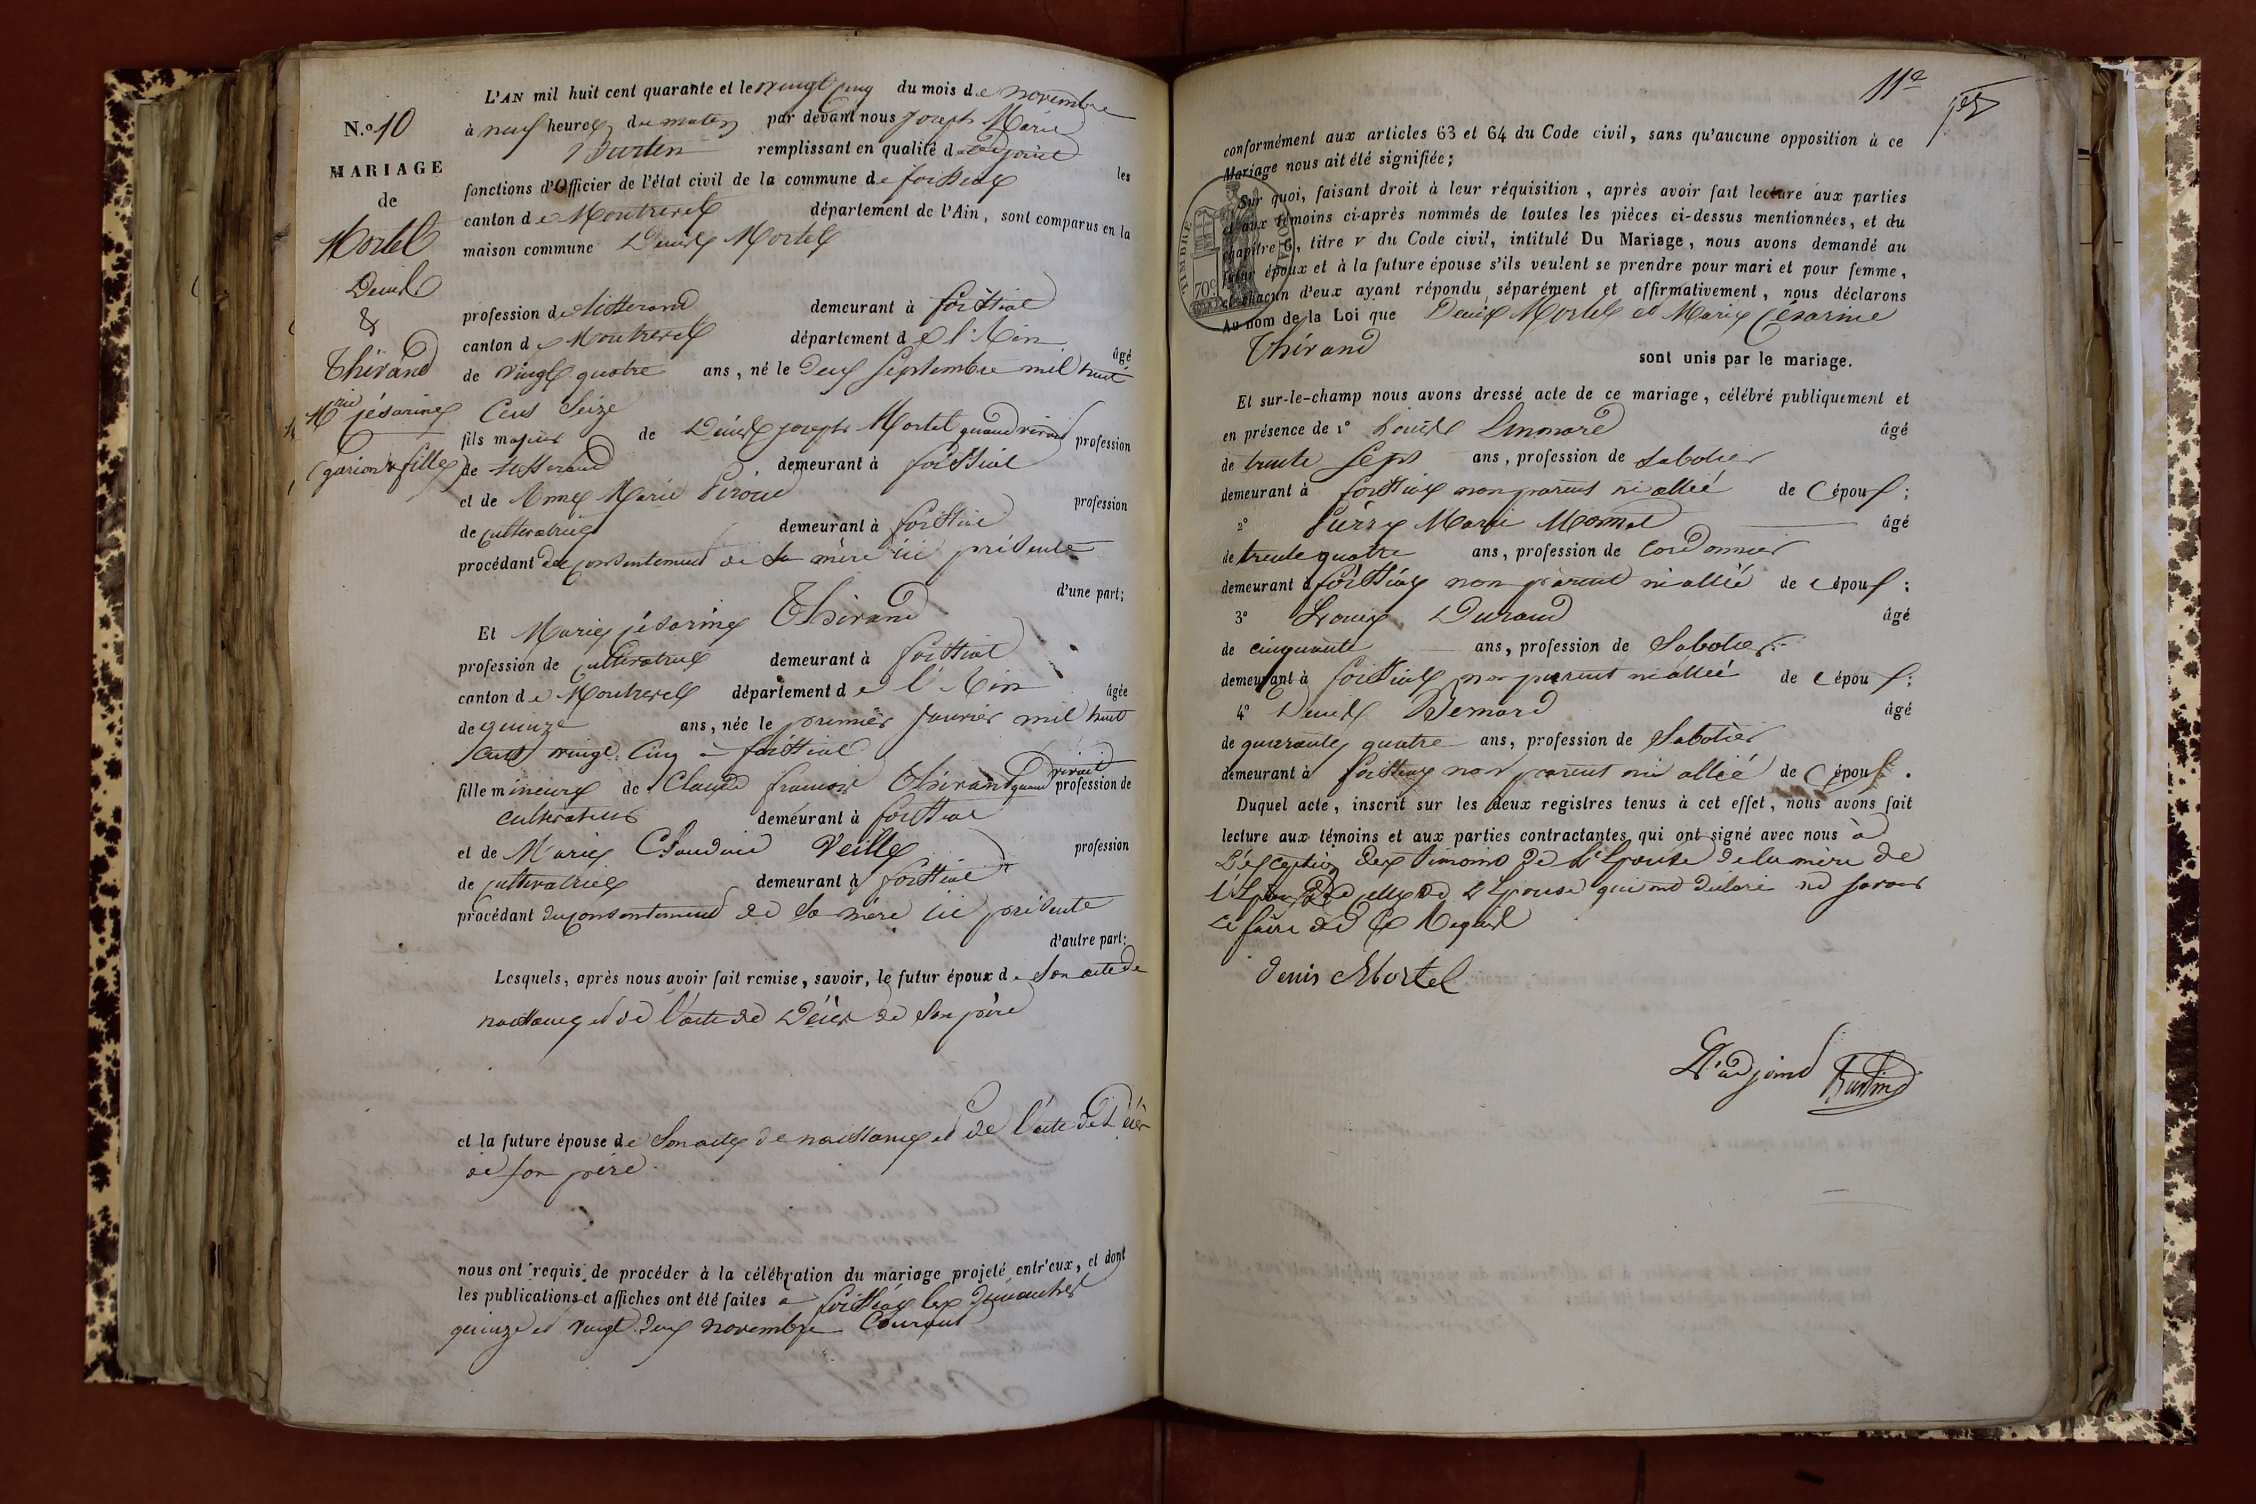 N.o 10
MARIAGE
de
Mortel
Denis
&
Thirand
Mrie jésarine
(garçon & fille)
L'AN mil huit cent quarante et le vingt cinq du mois de novembre
à neuf heures du matin par devant nous joseph Marie
Burtin remplissant en qualité d'adjoint les
fonctions d'Officier de l'état civil de la commune de foissiat
canton de Montrevel département de l'Ain, sont comparus en la
maison commune Denis Mortel
profession de tisserand demeurant à foissiat
canton de Montrevel département de l'Ain âgé
de vingt quatre ans, né le deux septembre mil huit
cent seize
fils majeur de Denis joseph Mortel quand vivait profession
de tisserand demeurant à foissiat
et de Anne Marie Piroud profession
de cultivatrice demeurant à foissiat
procédant du consentement de sa mère ici présente
d'une part;
Et Marie jésarine Thirand
profession de cultivatrice demeurant à foissiat
canton de Montrevel département de l'Ain âgée
de quinze ans, née le premier janvier mil huit
cent vingt cinq à foissiat
fille mineure de Claude françois Thirand quand vivait profession de
cultivateur demeurant à foissiat
et de Marie Claudine Veille profession
de cultivatrice demeurant à foissiat
procédant du consentement de sa mère ici présente
d'autre part;
Lesquels, après nous avoir fait remise, savoir, le futur époux de son acte de
naissance et de l'acte de Décès de son père
et la future épouse de son acte de naissance et de l'acte de Décès
de son père
nous ont requis de procéder à la célébration du mariage projeté entr'eux, et dont
les publications et affiches ont été faites à foissiat les dimanches
quinze et vingt deux novembre courant
11e
conformément aux articles 63 et 64 du Code civil, sans qu'aucune opposition à ce
Mariage nous ait été signifiée;
Sur quoi, faisant droit à leur réquisition, après avoir fait lecture aux parties
et aux témoins ci-après nommés de toutes les pièces ci-dessus mentionnées, et du
chapitre 6, titre v du Code civil, intitulé Du Mariage, nous avons demandé au
futur époux et à la future épouse s'ils veulent se prendre pour mari et pour femme,
et chacun d'eux ayant répondu séparément et affirmativement, nous déclarons
Au nom de la Loi que Denis Mortel et Marie Césarine
Thirand sont unis par le mariage.
TIMBRE ROYAL
70c
Et sur-le-champ nous avons dressé acte de ce mariage, célébré publiquement et
en présence de 1o Denis âgé
de trente sept ans, profession de sabotier
demeurant à foissiat non parent ni allié de l'époux;
2o Pierre Marie âgé
de trente quatre ans, profession de cordonnier
demeurant à foissiat non parent ni allié de l'époux;
3o Louis Durand âgé
de cinquante ans, profession de Sabotier
demeurant à foissiat non parent ni allié de l'époux;
4o Denis Bernard âgé
de quarante quatre ans, profession de Sabotier
demeurant à foissiat non parent ni allié de l'époux.
Duquel acte, inscrit sur les deux registres tenus à cet effet, nous avons fait
lecture aux témoins et aux parties contractantes, qui ont signé avec nous à
L'exception des témoins de L'épouse de la mère de
L'époux de celle de L'épouse qui ont déclaré ne savoir
Le faire de ce Requis
denis Mortel
L'adjoint Burtin